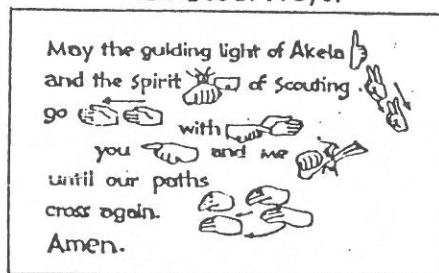 May the guiding light of Akela
and the Spirit of Scouting
go
with
you and me
until our paths
cross again.
Amen.